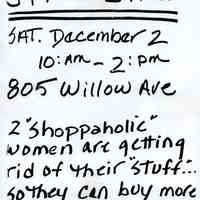 SAT. December 2
10:AM - 2:PM
805 Willow Ave
2 "Shoppaholic"
women are getting
rid of their "stuff"...
so they can buy more